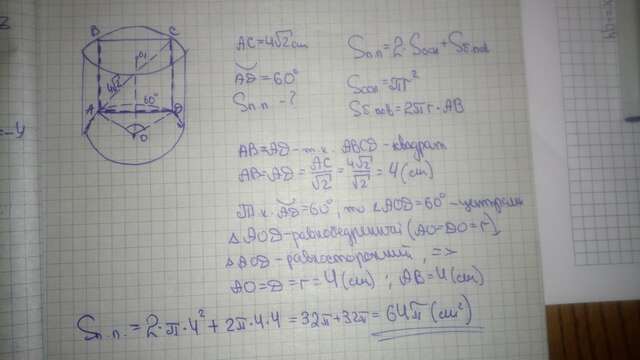 B C
O₁
4√2
60°
A D
O
AC=4√2 cm
A͝D=60°
Sп.п-?
Sп.п=2·Sосн+Sб.пов
Sосн=πr²
Sб.пов=2πr·AB
AB=AD-т.к. ABCD-квадрат
AB=AD=AC/√2=4√2/√2=4(cm)
Т.к. A͝D=60°, то ∠AOD=60°-централь
△AOD-равнобедренный (AO=DO=r),
△AOD-равносторонний, =>
AO=D=r=4(cm); AB=4(cm)
Sп.п.=2·π·4²+2π·4·4=32π+32π=64π(cm²)